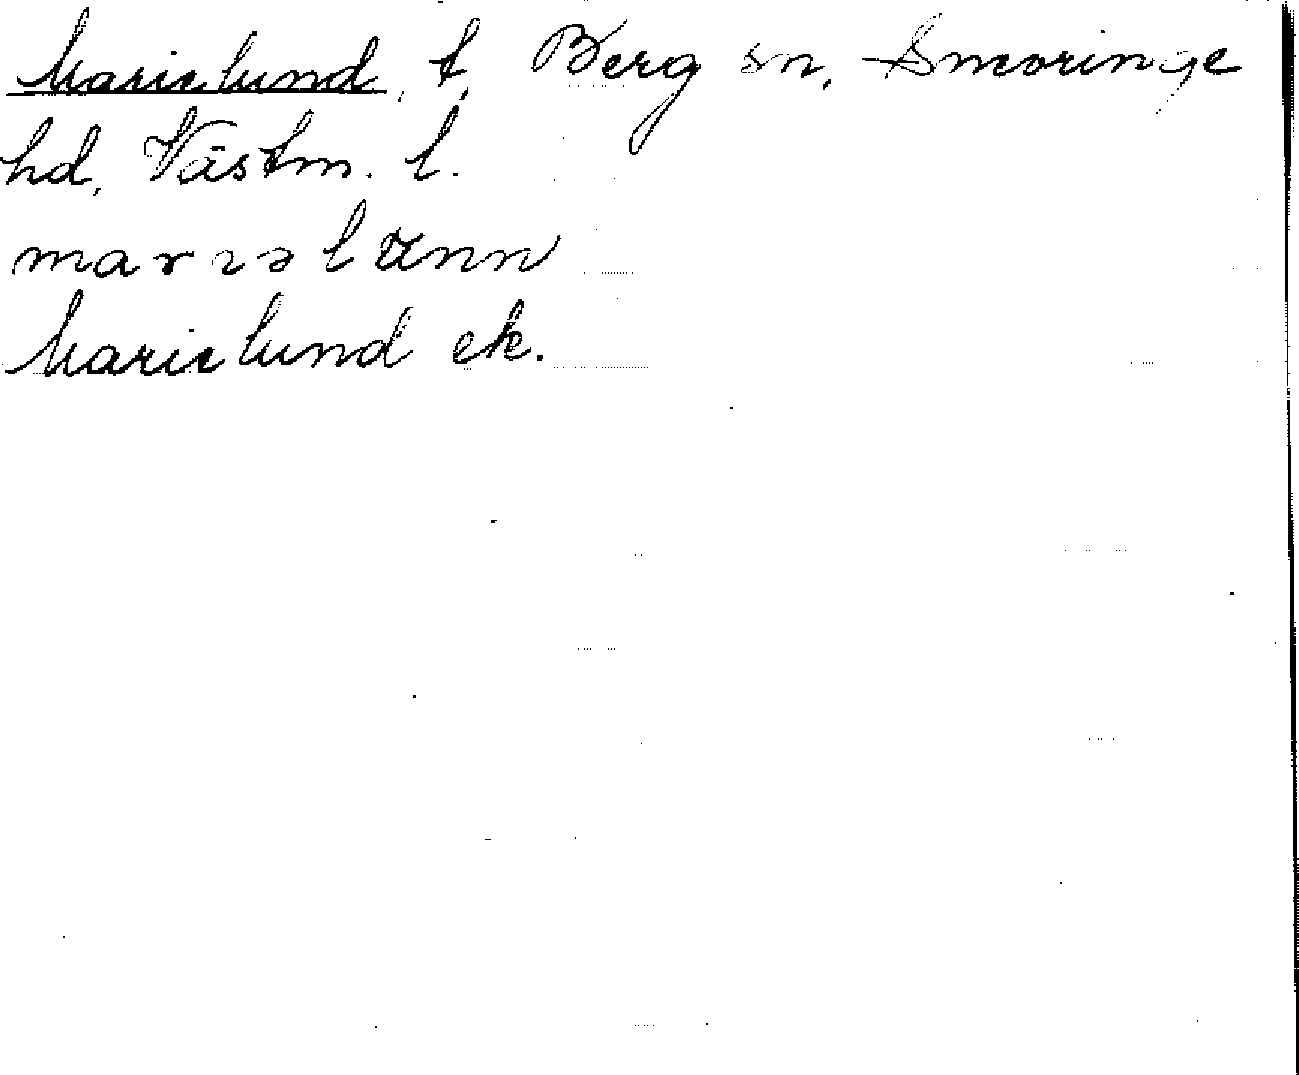 Marielund, t, Berg sn, Snevringe
hd, Västm. l.
marıəlunn
Marielund ek.